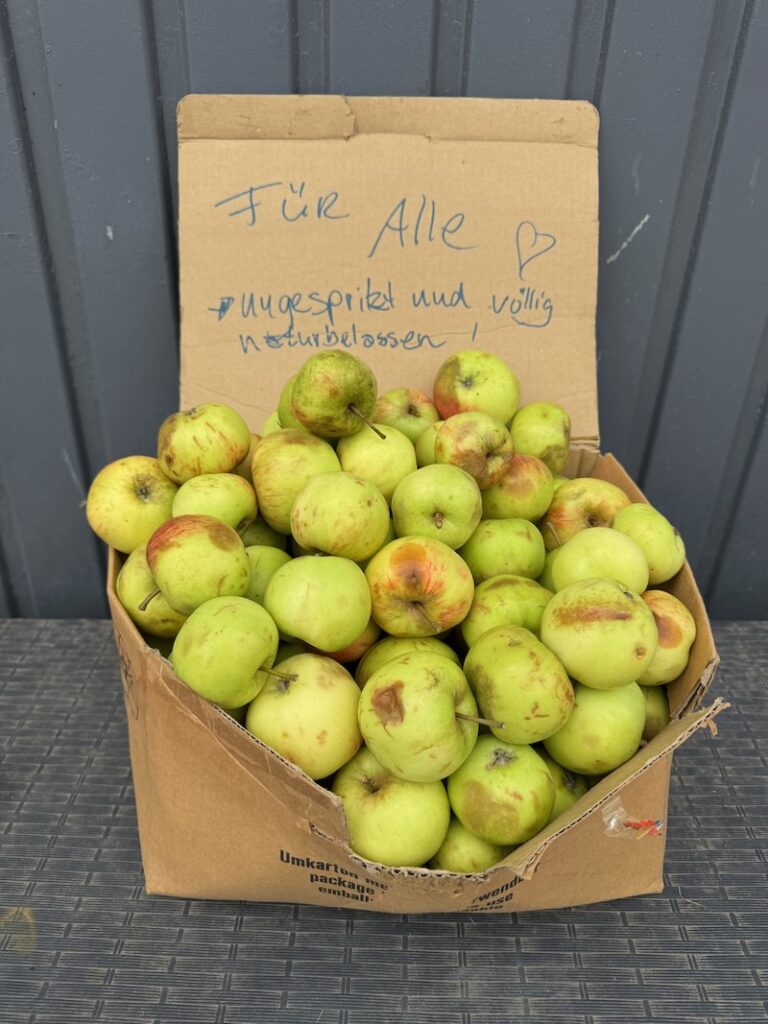 Für Alle
ungesprizt und völlig
naturbelassen !
Umkarton
package
emball
use